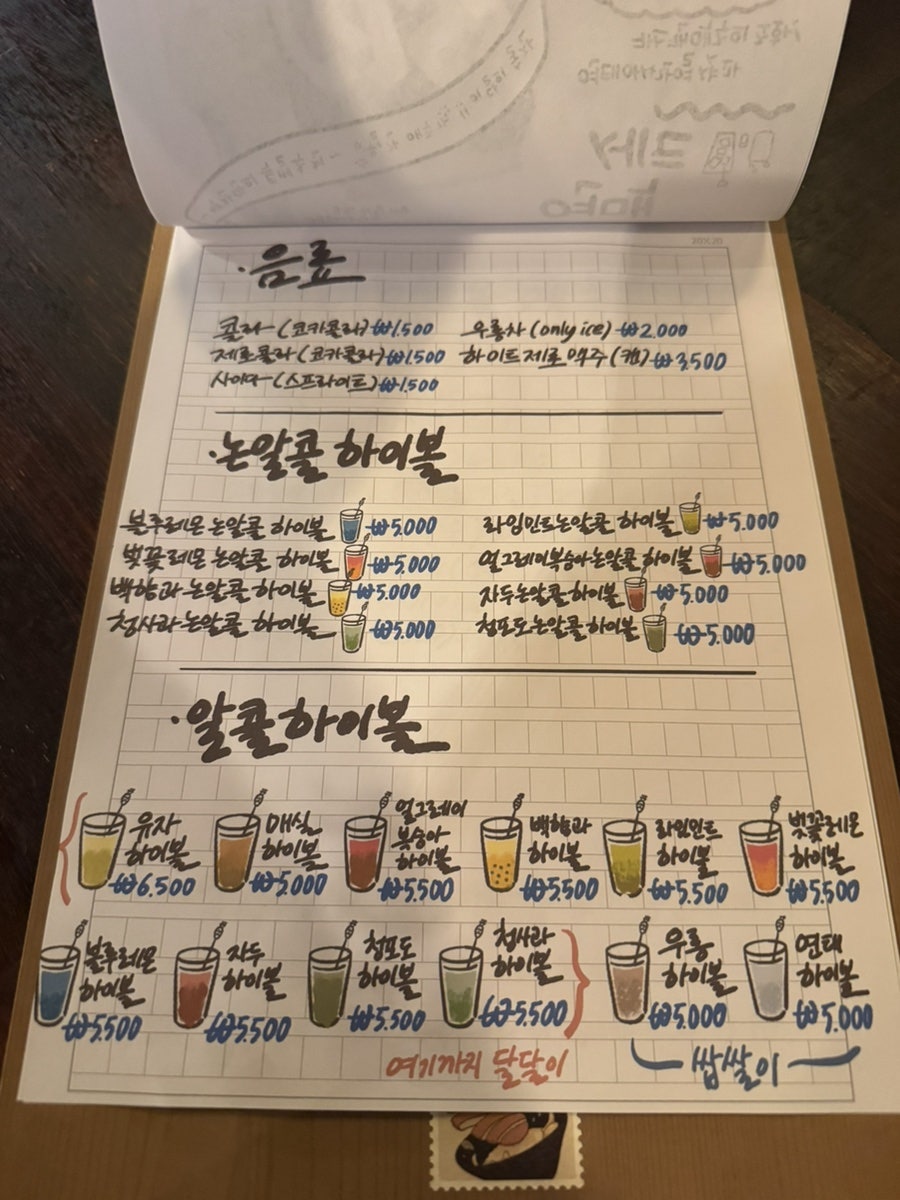 20X20
·음료
콜라(코카콜라) ₩1,500
우롱차 (only ice) ₩2,000
제로콜라(코카콜라) ₩1,500
하이트제로 맥주 (캔) ₩3,500
사이다(스프라이트) ₩1,500
·논알콜 하이볼
블루레몬 논알콜 하이볼 ₩5.000
라임민트논알콜 하이볼 ₩5.000
벚꽃레몬 논알콜 하이볼 ₩5.000
얼그레이복숭아논알콜 하이볼 ₩5.000
백향과 논알콜 하이볼 ₩5.000
자두논알콜 하이볼 ₩5.000
청사과 논알콜 하이볼 ₩5.000
청포도논알콜 하이볼 ₩5.000
·알콜하이볼
유자
하이볼
₩6.500
매실
하이볼
₩5.000
얼그레이
복숭아
하이볼
₩5.500
백향과
하이볼
₩5.500
라임민트
하이볼
₩5.500
벚꽃레몬
하이볼
₩5.500
블루레몬
하이볼
₩5.500
자두
하이볼
₩5.500
청포도
하이볼
₩5.500
청사과
하이볼
₩5.500
우롱
하이볼
₩5.000
연태
하이볼
₩5.000
여기까지 달달이
쌉쌀이